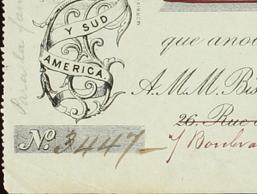 Y SUD
AMERICA
que ano
A.M.M. Bis
26. Rue
7/ Bouleva
No. 3447-